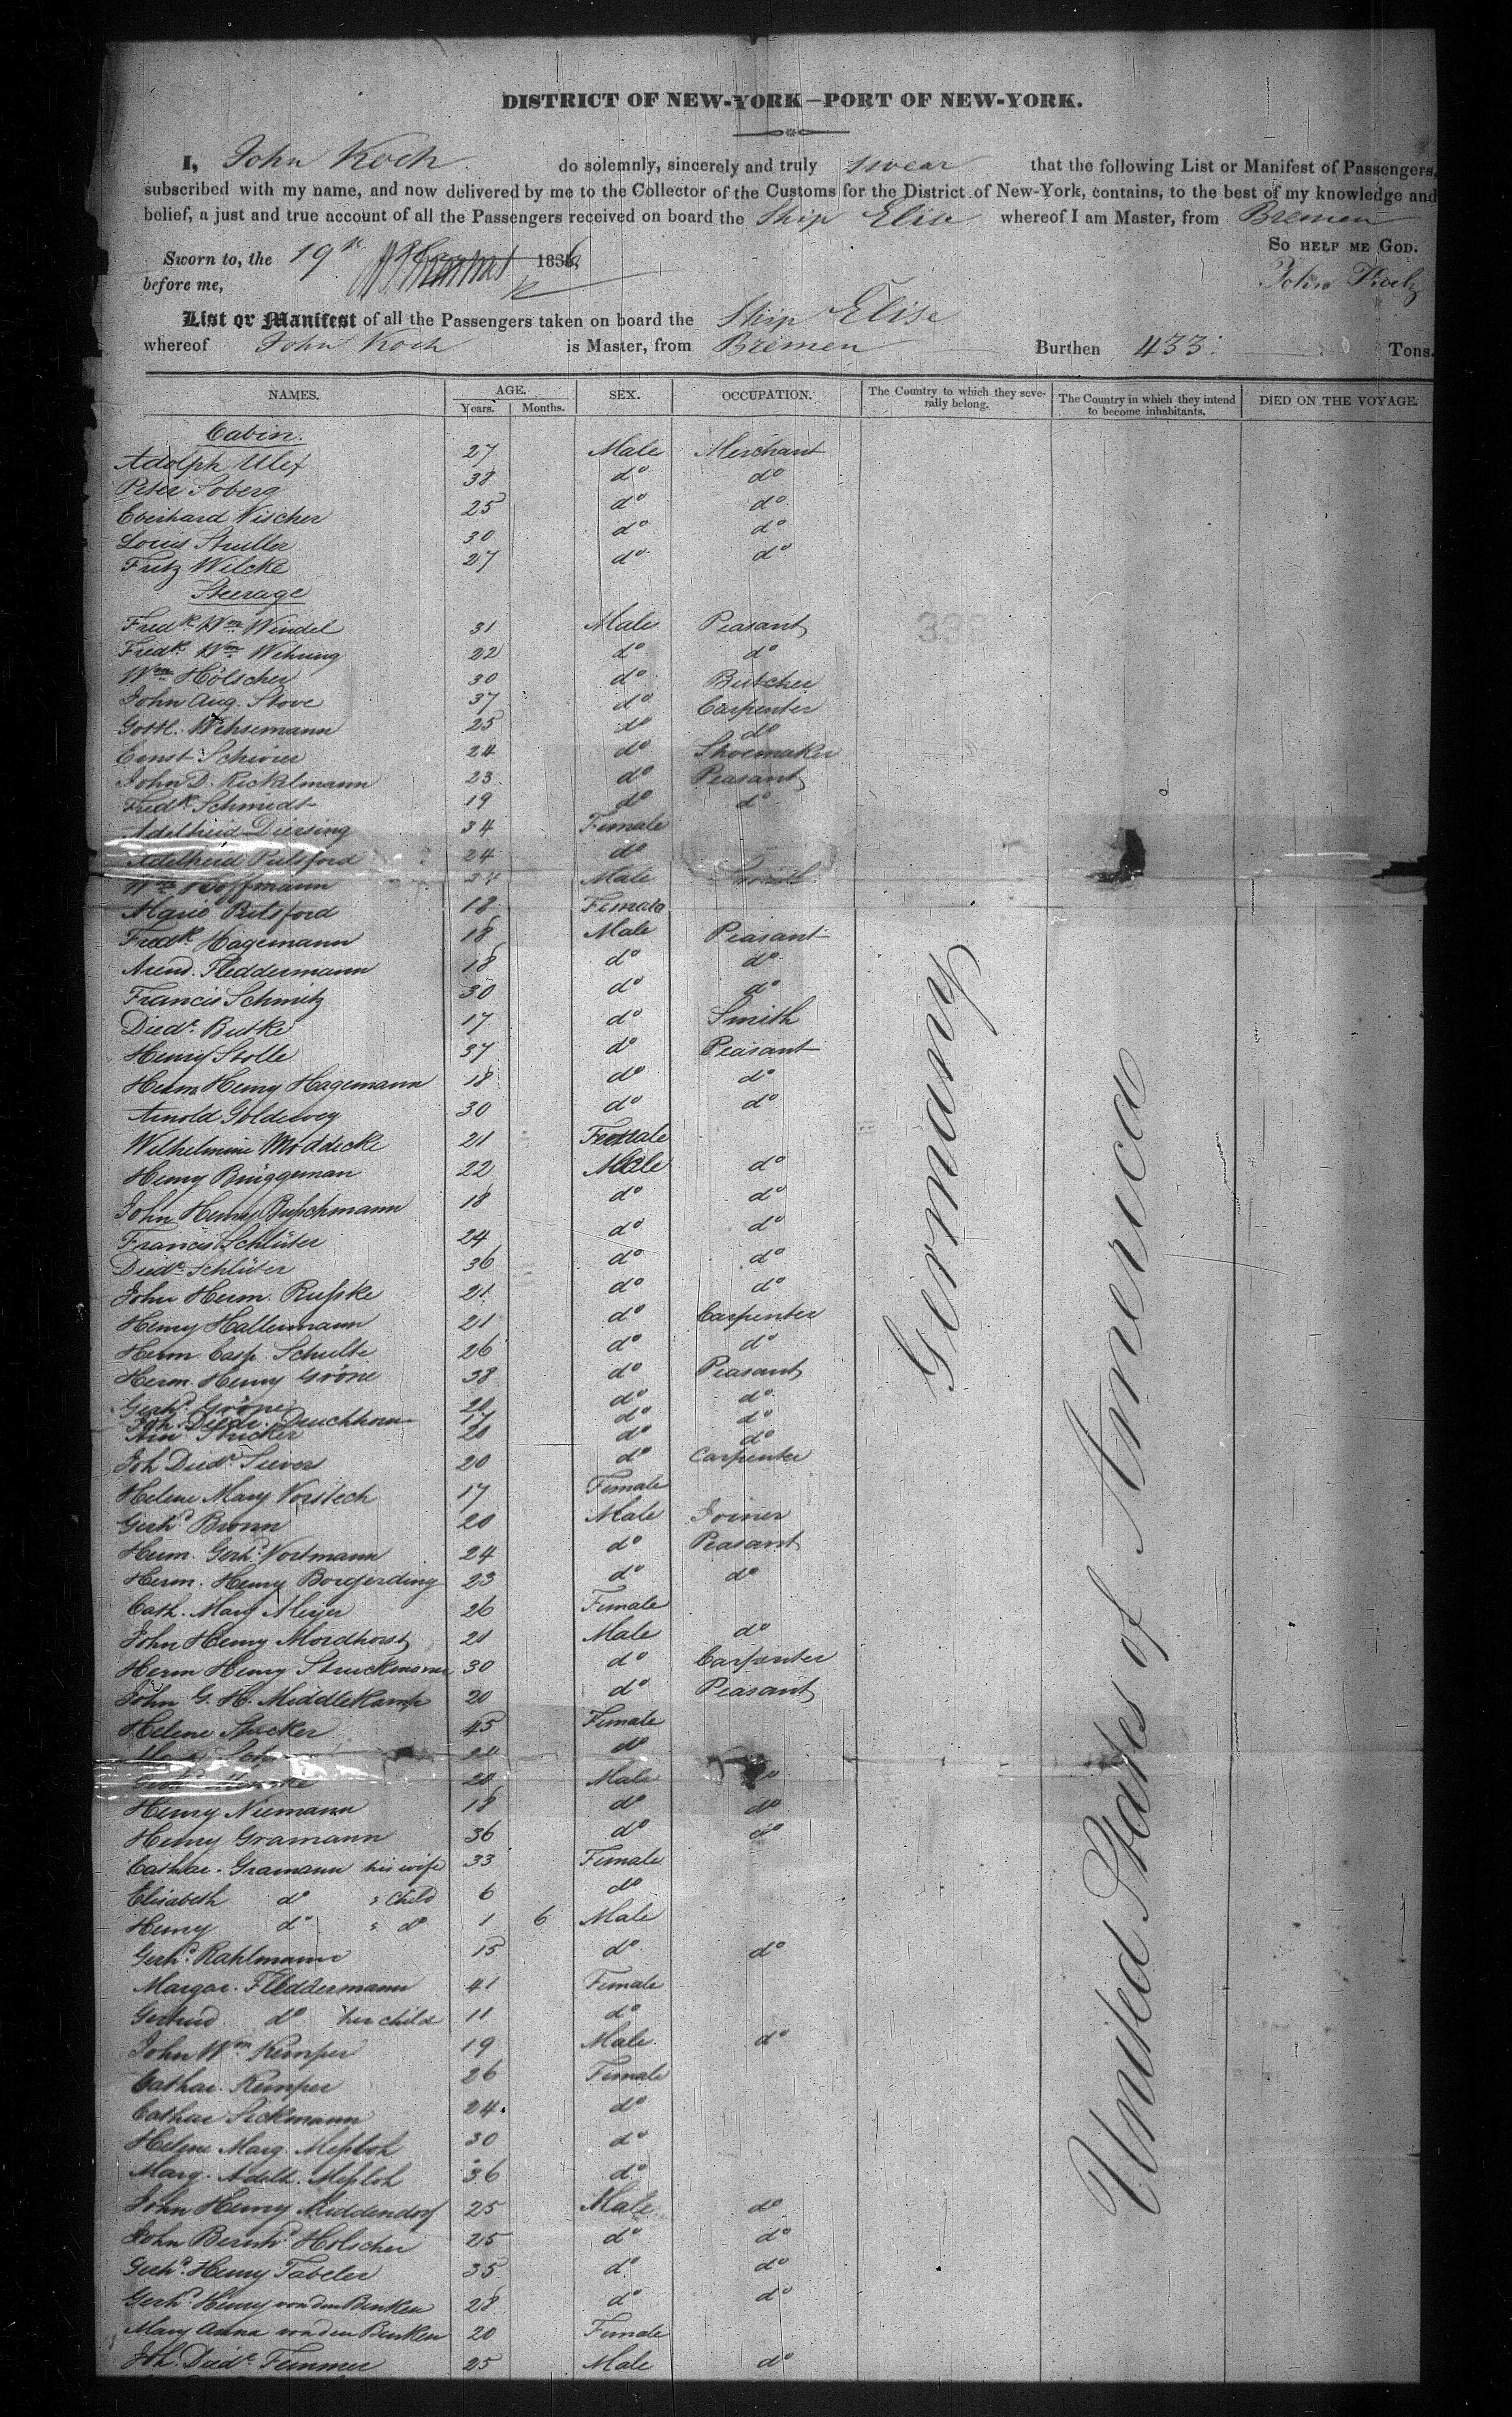 DISTRICT OF NEW-YORK—PORT OF NEW-YORK.
I, John Koch do solemnly, sincerely and truly swear that the following List or Manifest of Passengers,
subscribed with my name, and now delivered by me to the Collector of the Customs for the District of New-York, contains, to the best of my knowledge and
belief, a just and true account of all the Passengers received on board the Ship Elise whereof I am Master, from Bremen
So help me God.
Sworn to, the 19th 1836
before me, John Koch
List or Manifest of all the Passengers taken on board the Ship Elise
whereof John Koch is Master, from Bremen Burthen 433 Tons.
NAMES. AGE. Years. Months. SEX. OCCUPATION. The Country to which they severally belong. The Country in which they intend to become inhabitants. DIED ON THE VOYAGE.
Cabin.
Adolph Ulex 27 Male Merchant
Peter Soberg 38 do do
Eberhard Vischer 25 do do
Louis 30 do do
Fritz Wilcke 27 do do
Steerage
Fredk. Wm. Windel 31 Male Peasant
Fredk. Wm. Wehung 22 do do
Wm. Hölscher 30 do Butcher
John Aug. Stove 37 do Carpenter
Gottl. Wehsemann 25 do do
Ernst 24 do Shoemaker
John D. Rickelmann 23 do Peasant
Fredk. Schmidt 19 do do
Adelheid Diersing 34 Female
Adelheid Pulsford 24 do
Wm. Hoffmann 24 Male
Marie Pulsford 18 Female
Fredk. Hagemann 18 Male Peasant
Arend. Fleddermann 18 do do
Francis Schmitz 30 do do
Diedr. Butke 17 do Smith
Henry Stolle 37 do Peasant
Herm. Henry Hagemann 18 do do
Arnold 30 do do
Wilhelmine Moddicke 21 Female
Henry Brüggeman 22 Male do
John Henry Buschmann 18 do do
Francis Schlüter 24 do do
Diedr. Schlüter 36 do do
John Herm. Rufske 21 do do
Henry Hallermann 21 do Carpenter
Herm. Casp. Schulte 26 do do
Herm. Henry Gröne 38 do Peasant
Gerhd. Gröne 20 do do
Joh. Diedr. Druchhorn 17 do do
Stricker 20 do do
Joh Diedr. Siever 20 do Carpenter
Helene Mary Vorstech 17 Female
Gerhd. Bronn 20 Male Joiner
Herm. Gerhd. Vortmann 24 do Peasant
Herm. Henry Borgerding 23 do do
Cath. Marg Meyer 26 Female
John Henry Mordhorst 21 Male do
Herm Henry Struckmann 30 do Carpenter
John G. H. Middlekamp 20 do Peasant
Helene Stricker 45 Female
20 do
Gerhd. 20 Male do
Henry Niemann 18 do do
Henry Gramann 36 do do
Cathar. Gramann his wife 33 Female
Elisabeth do " child 6 do
Henry do " do 1 6 Male
Gerhd. Rahlmann 15 do do
Margar. Fleddermann 41 Female
Gertrud do her child 11 do
John Wm. Kemper 19 Male do
Cathar. Kemper 26 Female
Cathar Sickmann 24 do
Helene Marg. Mesloh 30 do
Marg. Adelh. Mesloh 36 do
John Henry Middendorf 25 Male do
John Bernhd. Holscher 25 do do
Gerhd. Henry Tabeler 35 do do
Gerhd. Henry von den Benken 28 do do
Mary Anna von den Benken 20 Female
Joh. Diedr. Femmer 25 Male do
Germany
United States of America